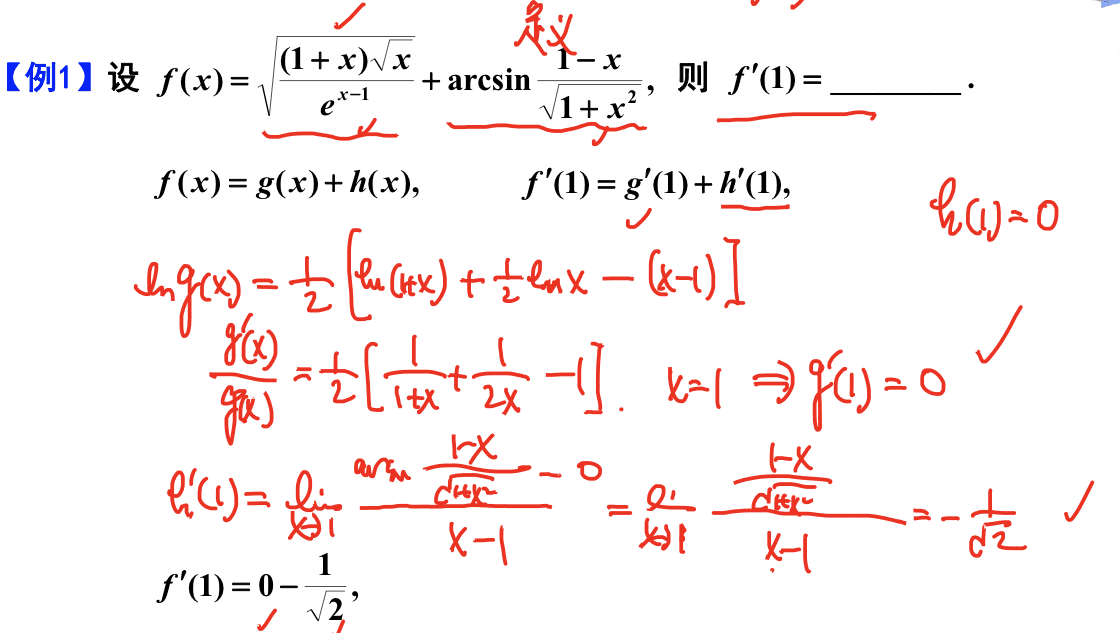 定义
【例1】设 f(x) = √((1+x)√x / e^(x−1)) + arcsin (1−x)/√(1+x²), 则 f′(1) = ________ .
f(x) = g(x) + h(x), f′(1) = g′(1) + h′(1),
h(1) = 0
ln g(x) = 1/2 [ln(1+x) + 1/2 ln x − (x−1)]
g′(x)/g(x) = 1/2 [1/(1+x) + 1/(2x) − 1]. x=1 ⇒ g′(1) = 0
h′(1) = lim x→1 (arcsin (1−x)/√(1+x²) − 0)/(x−1) = lim x→1 ((1−x)/√(1+x²))/(x−1) = − 1/√2
f′(1) = 0 − 1/√2,